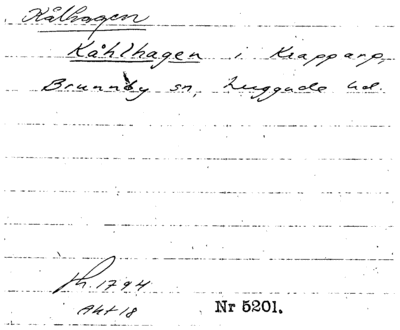 Kålhagen
Kåhlhagen i Krapparp,
Brunnby sn, Luggude hd.
h. 1794
Akt 18
Nr 5201.